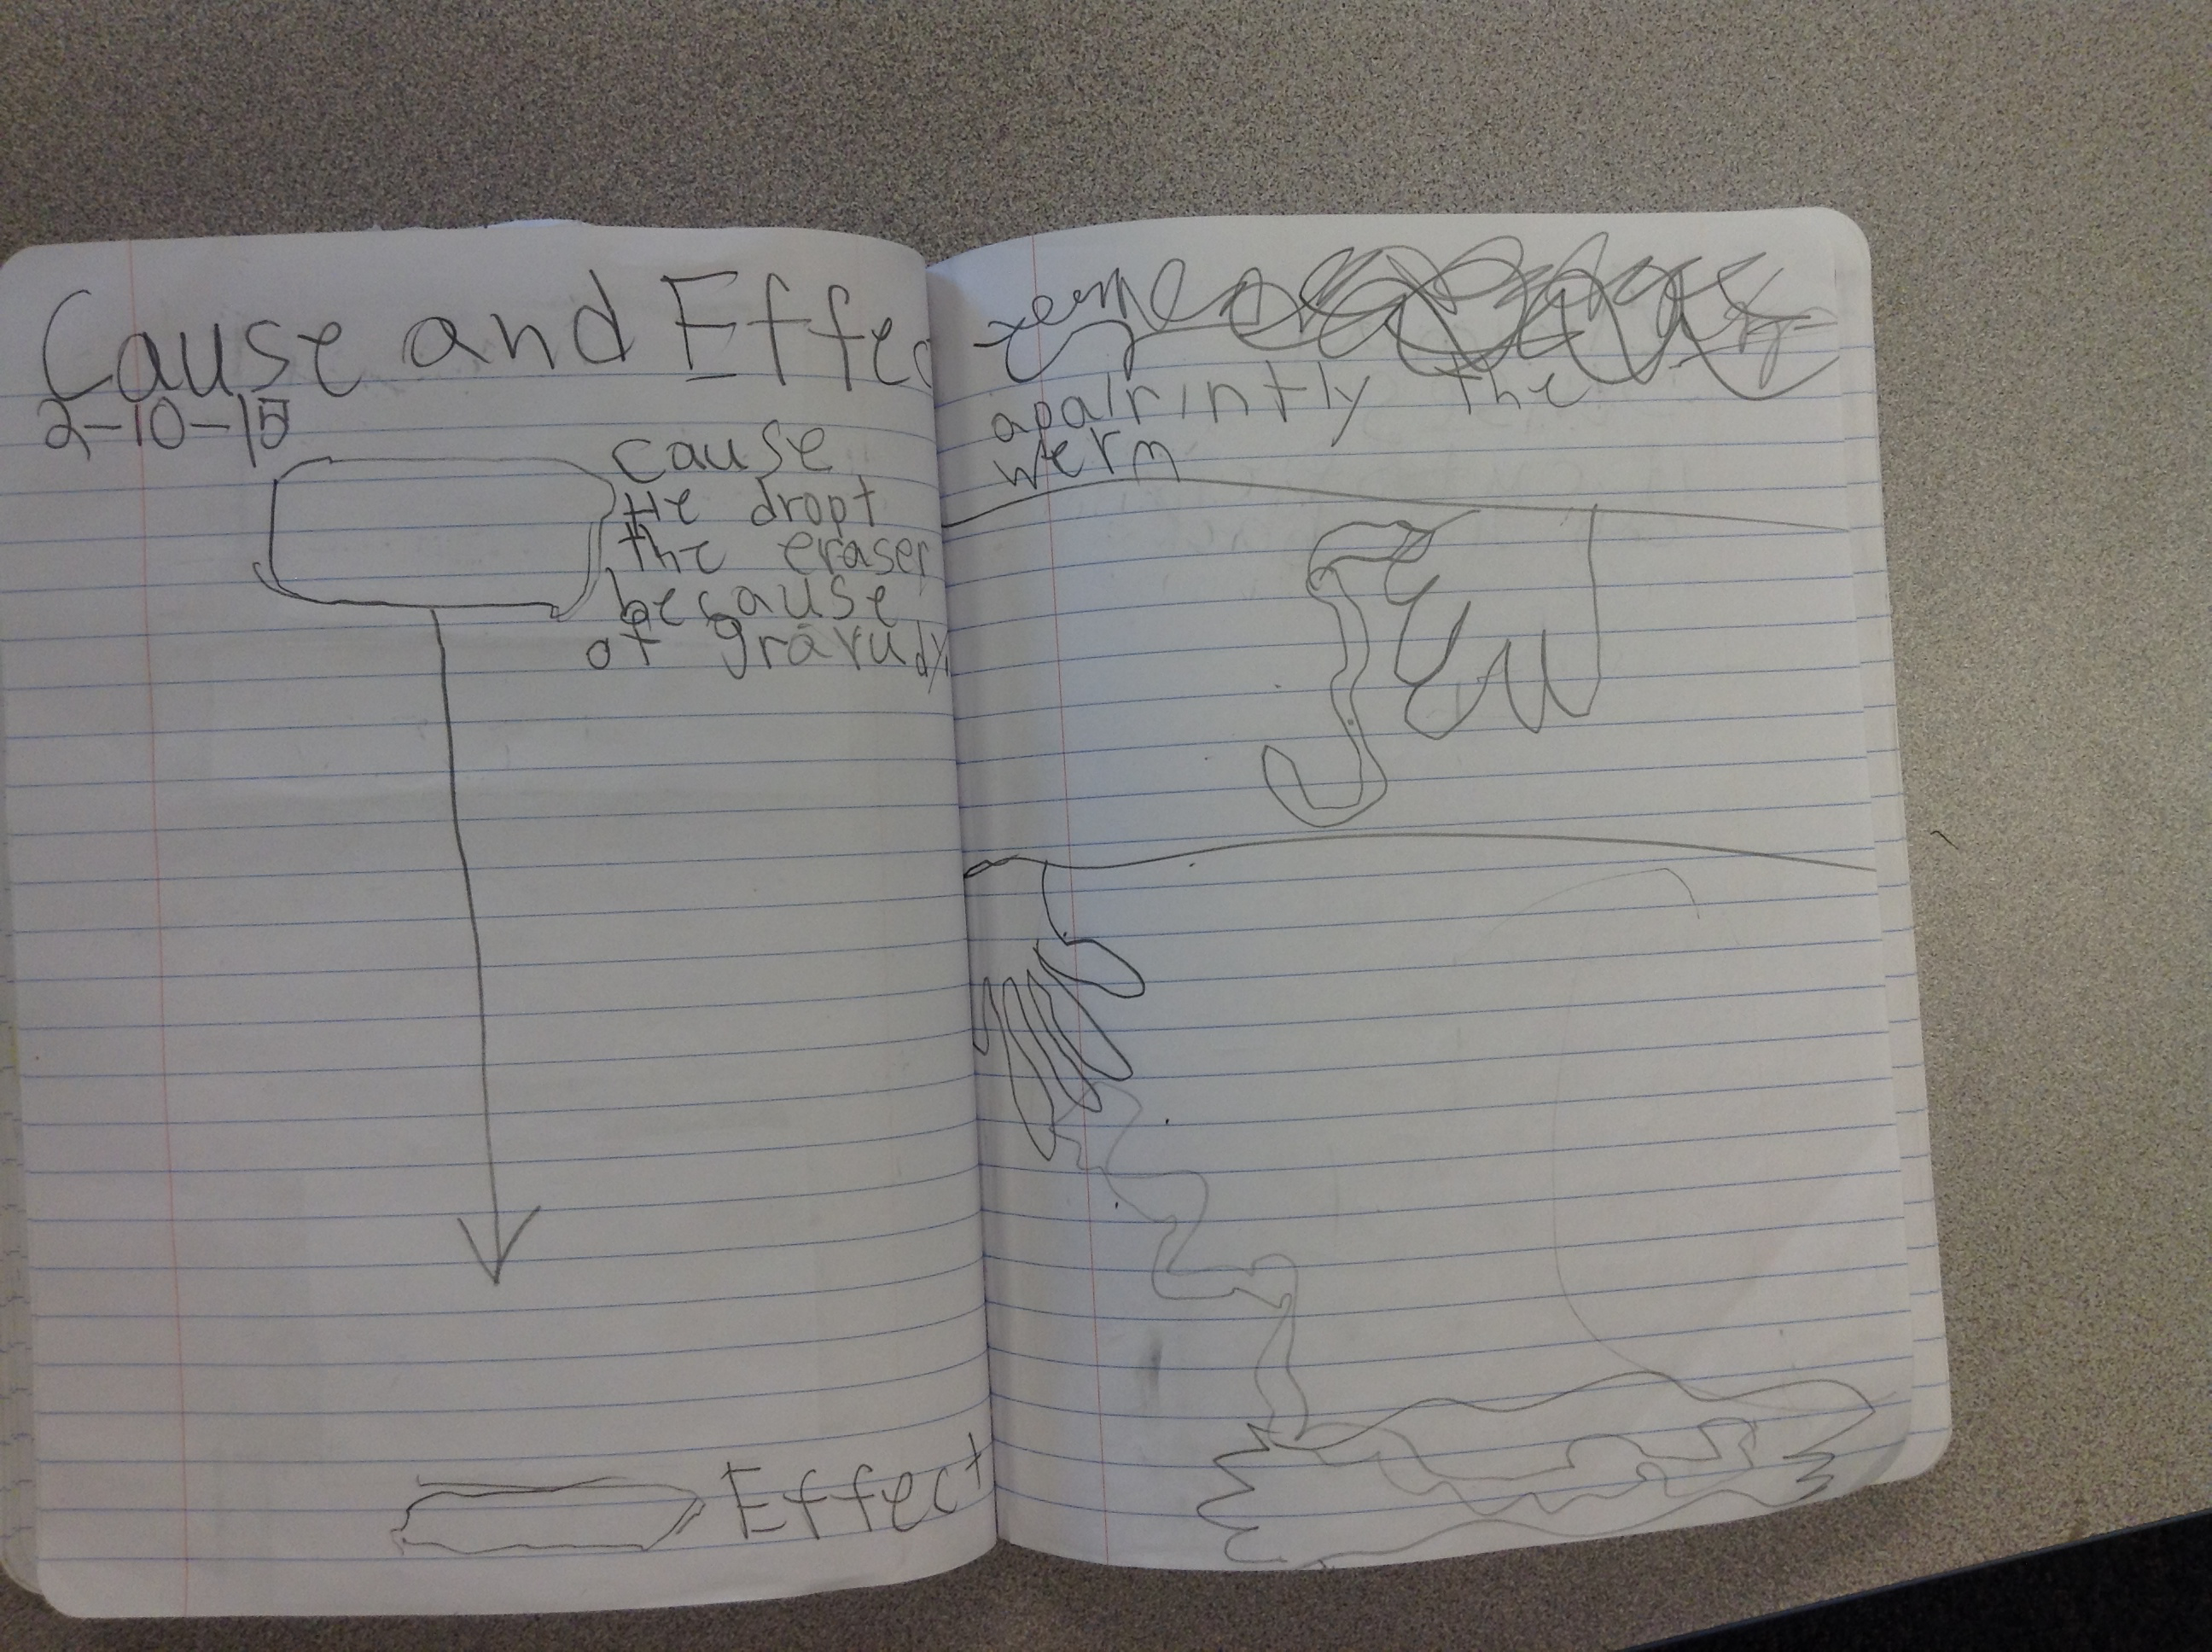 Cause and Effec
2-10-15
cause
He dropt
the eraser
because
of gravudy.
Effect
apalrintly the
werm